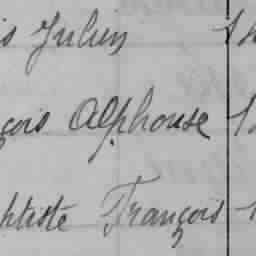 is Julien
çois Alphonse
ptiste François